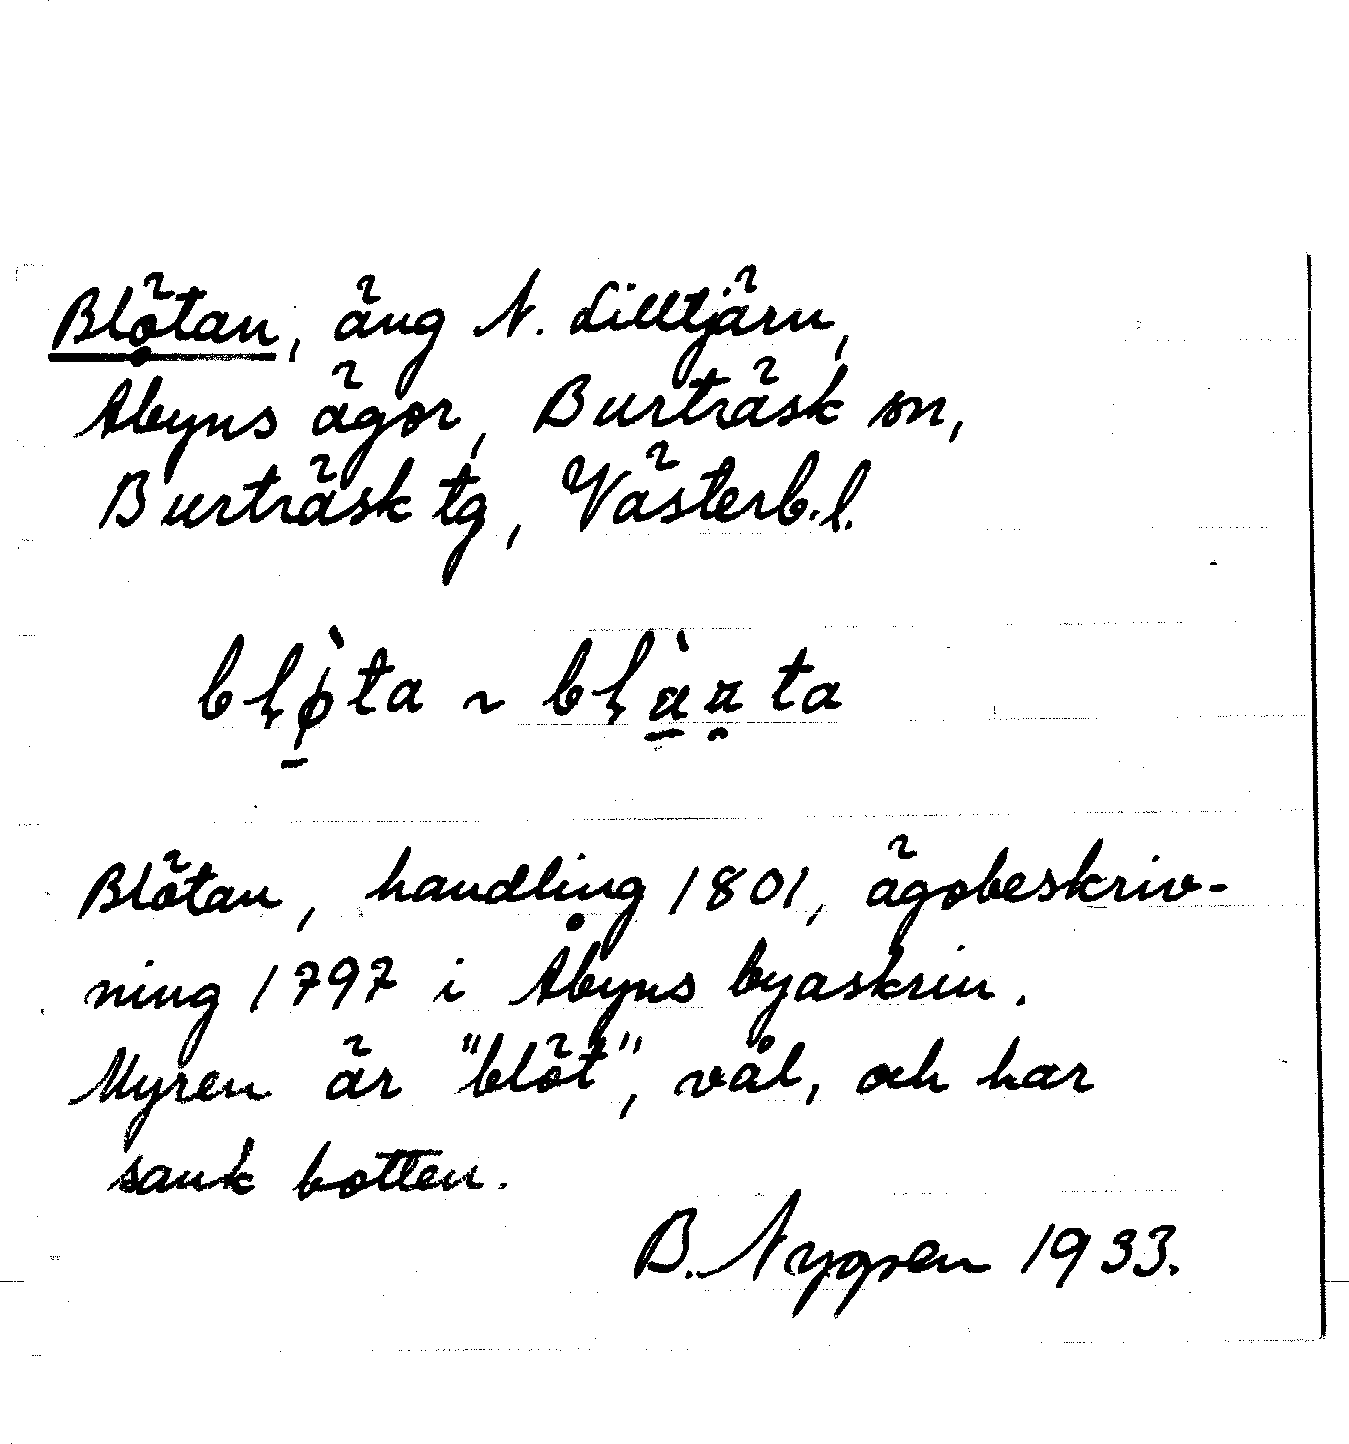 Blötan, äng N. Lilltjärn,
Åbyns ägor, Burträsk sn,
Burträsk tg, Västerb.l.
bl̨ø̱̀ta ~ bl̨à̱ä̯ta
Blötan, handling 1801, ägobeskriv-
ning 1797 i Åbyns byaskrin.
Myren är "blöt", våt, och har
sank botten.
B. Nygren 1933.